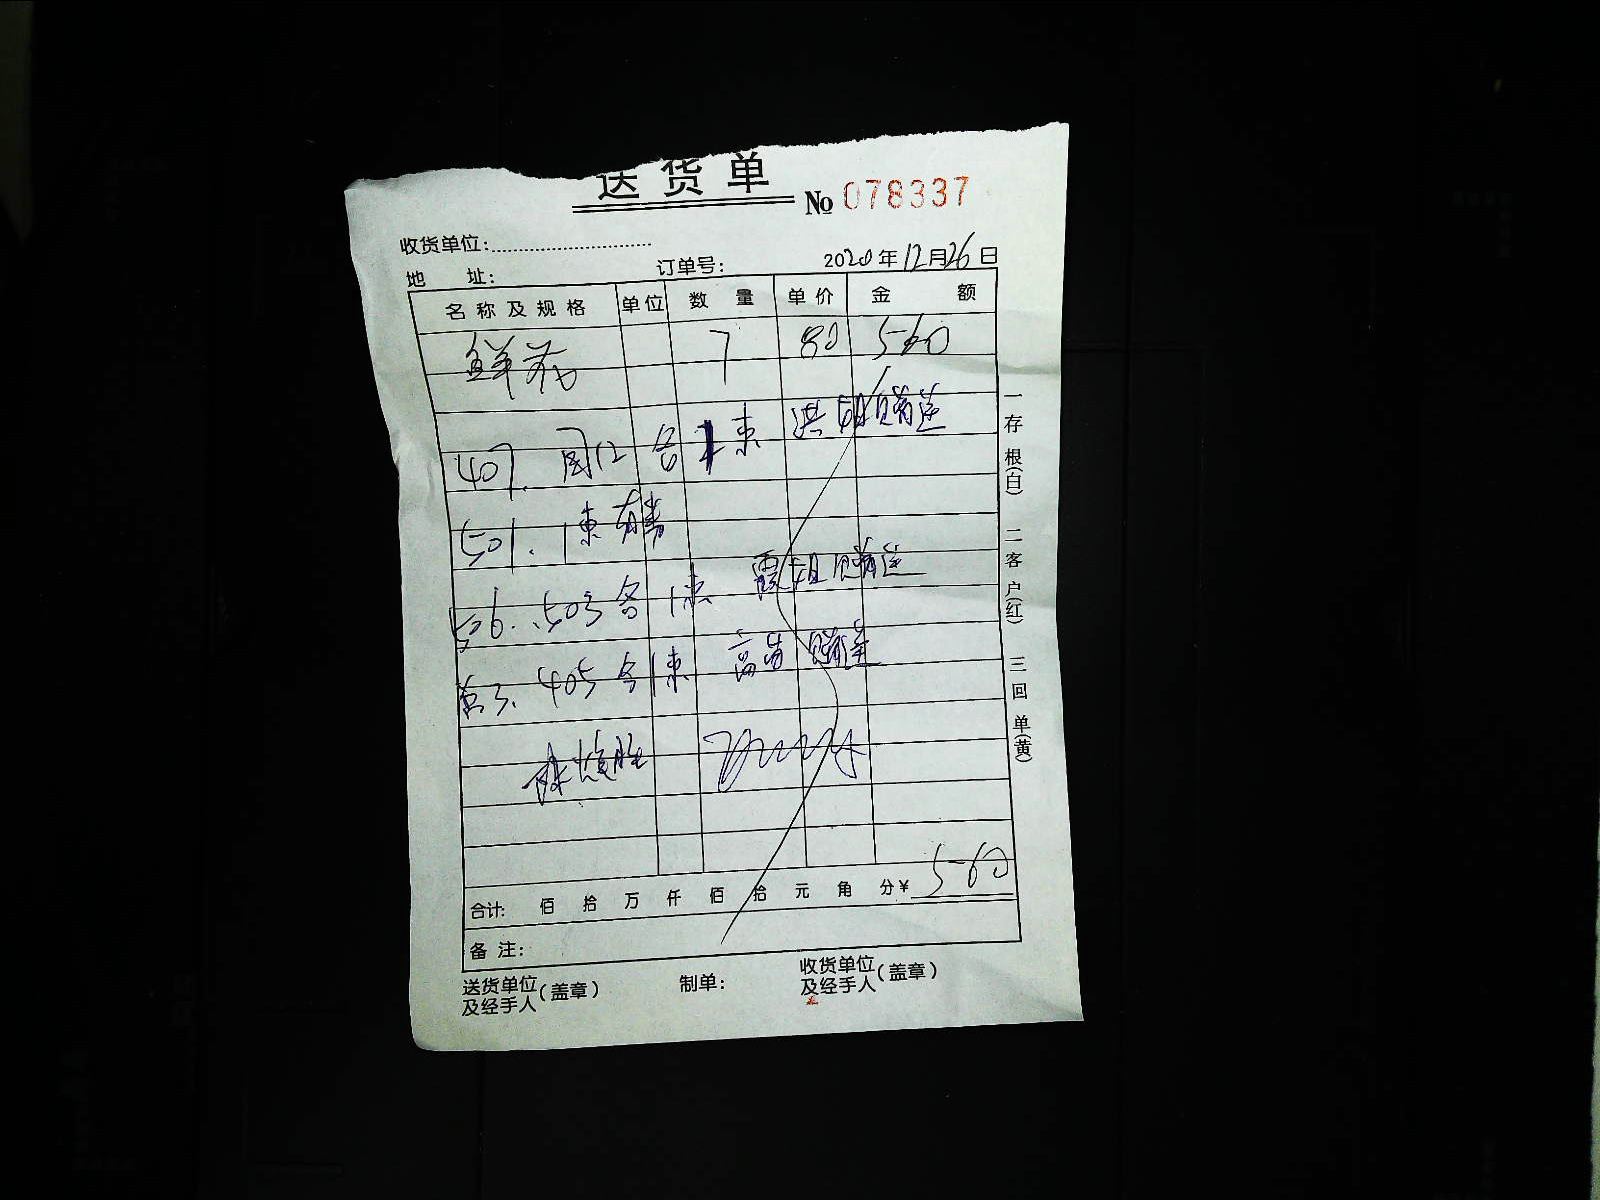 送货单
№ 078337
收货单位:
地 址: 订单号: 2020年12月26日
名称及规格 单位 数量 单价 金额
鲜花 7 80 560
407. 周12 各1束 洪姐赠送
501. 1束 有售
506. 503 各1束 霞姐赠送
405 各1束 赠送
合计: 佰 拾 万 仟 佰 拾 元 角 分 ¥ 560
备注:
送货单位及经手人(盖章) 制单: 收货单位及经手人(盖章)
一存根(白) 二客户(红) 三回单(黄)